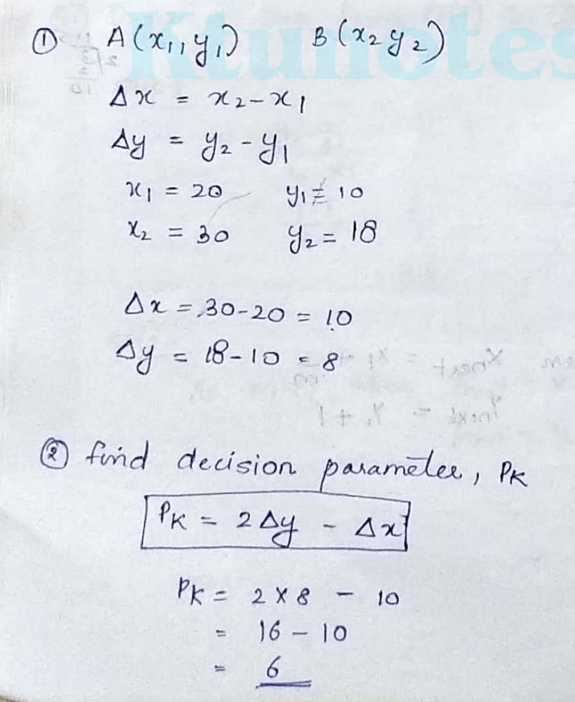 Ktunotes
① A(x₁, y₁) B(x₂ y₂)
Δx = x₂-x₁
Δy = y₂-y₁
x₁ = 20 y₁ = 10
x₂ = 30 y₂ = 18
Δx = 30-20 = 10
Δy = 18-10 = 8
② find decision parameter, PK
PK = 2Δy - Δx
PK = 2 x 8 - 10
= 16 - 10
= 6